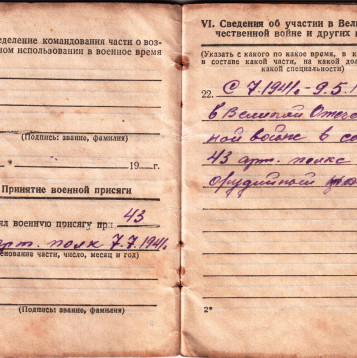 ределение командования части о воз-
ном использовании в военное время
(Подпись: звание, фамилия)
" 19 г.
Принятие военной присяги
ял военную присягу при 43
арт. полк 7.7.1941
енование части, число, месяц и год)
(Подпись: звание, фамилия)
VI. Сведения об участии в Вели
чественной войне и других
(Указать с какого по какое время, в к
в составе какой части, на какой дол
какой специальности)
22. С 7.1941 - 9.5.1
в Великой Отече
ной войне в со
43 арт. полка
орудийной
2*